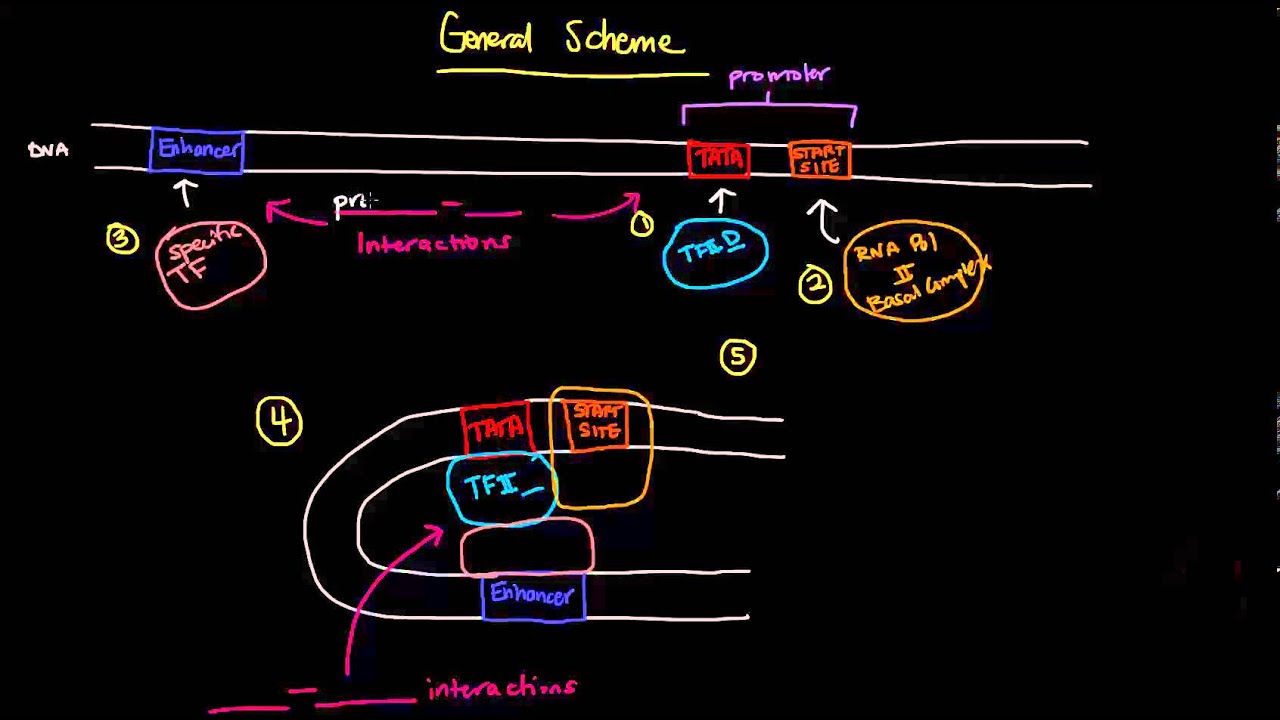 General Scheme
promoter
DNA
Enhancer
TATA
START
SITE
prot
_____ - ____
Interactions
3
Specific
TF
1
TFII D
2
RNA Pol
II
Basal Complex
5
4
TATA
START
SITE
TFII _
Enhancer
____ - _____ interactions